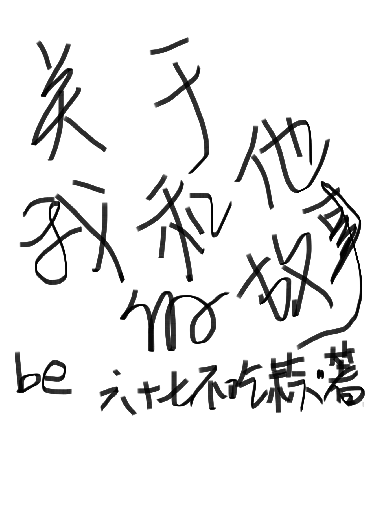 关于
我和他
的故事
be 六十七不吃蒜·著